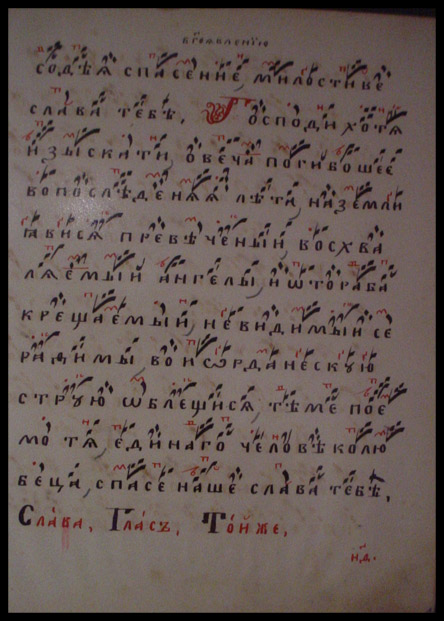 бг҃оѧвленїю
со́дѣꙗ спасе́нне, ми́лостиве
сла́ва те́бѣ. Го́спо́ди хо́тѧ
и́зыска́ти, о́веча поги́бошеє
во по́слѣ́денѧѧ лѣ́та, на́ земли
ꙗ́висѧ преве́че́ный, восхва
лѧ́емый а́нгелы, и ѡто раба
креща́емый, не́види́мый се
ра́фимы во и́ѻрда́не́скую
струю́ ѡ́блещи́сѧ, тѣ́ме́ поє
мо тѧ́, е́ди́наго че́ловѣ́колю
беца, спасе́ на́ше сла́ва те́бѣ,
Сла́ва, Гла́съ, То́йже,
н҃д.